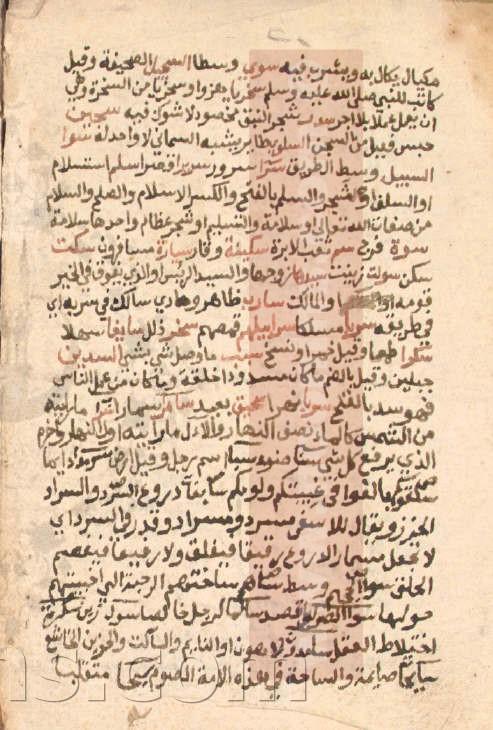 مكيال يكال به ويشرب فيه سوي وسطا السجل الصحيفة وقيل
كاتب للنبي صلى الله عليه وسلم سخريا يهزوا وسخريا من السخرة وهي
ان يعمل عملا بلا اجر سدر شجر النبق مخضود لا شوك فيه سجين
حبس فعيل من السجن السلوى طاير يشبه السماني لا واحد له سوا
السبيل وسط الطريق سرا سرور سريرا قصر اسلم استسلام
او السلف او شجر والسلم بالفتح والكسر الاسلام والصلح والسلام
من صفات الله تعالى او سلامة والتسليم او شجر عظام واحدها سلامة
سوة فرج سم ثقب الابرة سكينة وقار سيارة مسافرون سكت
سكن سولت زينت سيدها زوجها والسيد الرئيس او الذي يفوق في الخير
قومه او والمالك سارب ظاهر وهادي سالك في سربه اي
في طريقه سربا مسلكا سرابيلهم قمصهم سخر ذلل سايغا سهلا
سكرا طعما وقيل خمرا ونسخ سببا ما وصل شي بشي السدين
جبلين وقيل بالضم ما كان مسدودا خلقة وما كان من عمل الناس
فهو سد بالفتح سريا نهرا سحيق بعيد سامرا سمارا سرابا ما رايته
من الشمس كالماء نصف النهار والال ما رايته اول النهار واخره
الذي يرفع كل شي سنا ضوء سبا اسم رجل وقيل ارض سرمدا دايما
سلقوكم بالغوا في عيبتكم ولومكم سابغات دروع السرد والسراد
الخرز ويقال للاشفى مسرد ومسراد وقدر في السرد اي
لا تجعل مسمار الدروع رقيقا فيقلق ولا غليظا فيفصم
الحلق سوا الجحيم وسط ساحتهم الرحبة التي اخبيتهم
حولها سوا الصراط قصد سلما الرجل خالصا سول زين سكرة
اختلاط العقل سامدون لاهون او القايم والساكت والحزين الخاشع
سايحات صايمة والسياحة في هذه الامة الصوم سبحا متقلبا